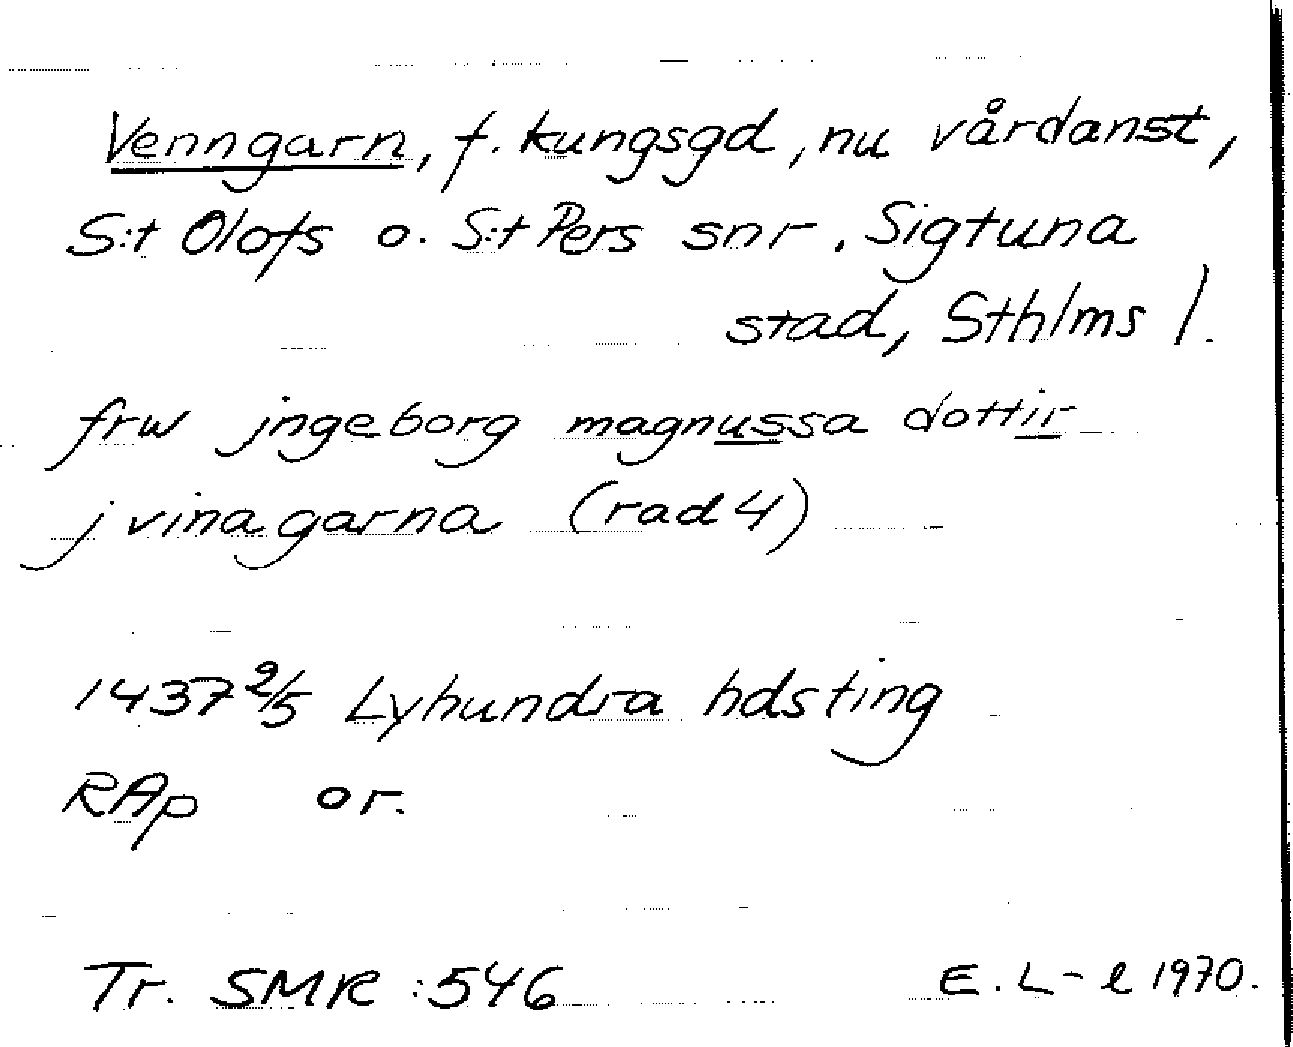 Venngarn, f. kungsgd, nu vårdanst,
S:t Olofs o. S:t Pers snr. Sigtuna
stad, Sthlms l.
frw jngeborg magnussa dottir
j vinagarna (rad 4)
1437 2/5 Lyhundra hdsting
RAp or.
Tr. SMR :546 E. L-l 1970.